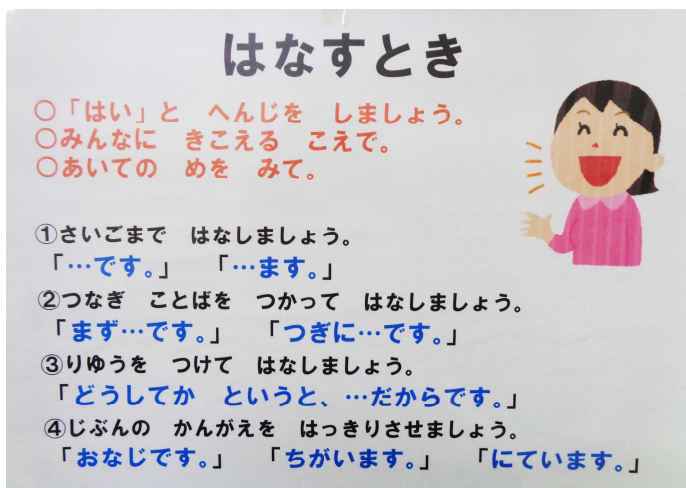 はなすとき
○「はい」と　へんじを　しましょう。
○みんなに　きこえる　こえで。
○あいての　めを　みて。
①さいごまで　はなしましょう。
「…です。」　「…ます。」
②つなぎ　ことばを　つかって　はなしましょう。
「まず…です。」　「つぎに…です。」
③りゆうを　つけて　はなしましょう。
「どうしてか　というと、…だからです。」
④じぶんの　かんがえを　はっきりさせましょう。
「おなじです。」　「ちがいます。」　「にています。」